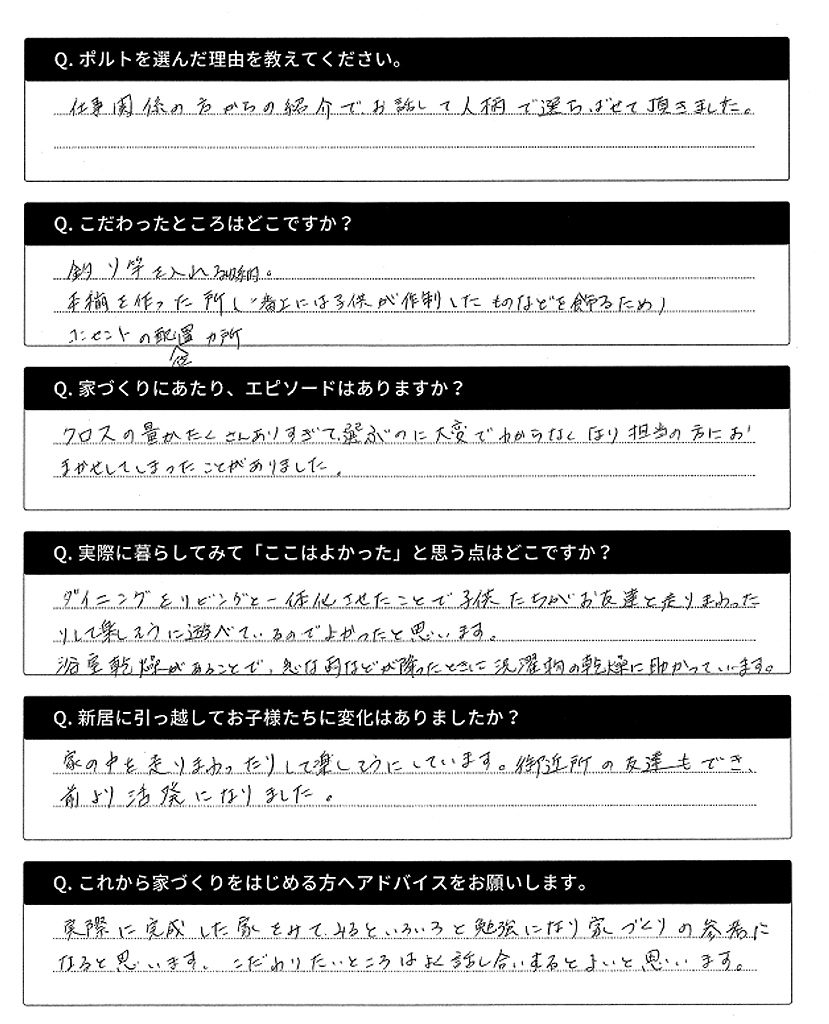 Q. ポルトを選んだ理由を教えてください。
仕事関係の方からの紹介で、お話して人柄で選らばせて頂きました。
Q. こだわったところはどこですか？
釣り竿を入れる収納。
本棚を作った所(棚上には子供が作制したものなどを飾るため)
コンセントの配置カ所
位
Q. 家づくりにあたり、エピソードはありますか？
クロスの量がたくさんありすぎて、選ぶのに大変でわからなくなり担当の方にお
まかせしてしまったことがありました。
Q. 実際に暮らしてみて「ここはよかった」と思う点はどこですか？
ダイニングをリビングと一体化させたことで子供たちがお友達と走りまわった
りして楽しそうに遊べているのでよかったと思います。
浴室乾燥があることで、急な雨などが降ったときに洗濯物の乾燥に助かっています。
Q. 新居に引っ越してお子様たちに変化はありましたか？
家の中を走りまわったりして楽しそうにしています。御近所の友達もでき、
前より活発になりました。
Q. これから家づくりをはじめる方へアドバイスをお願いします。
実際に完成した家をみてみるといろいろと勉強になり家づくりの参考に
なると思います。こだわりたいところはよく話し合いするとよいと思います。